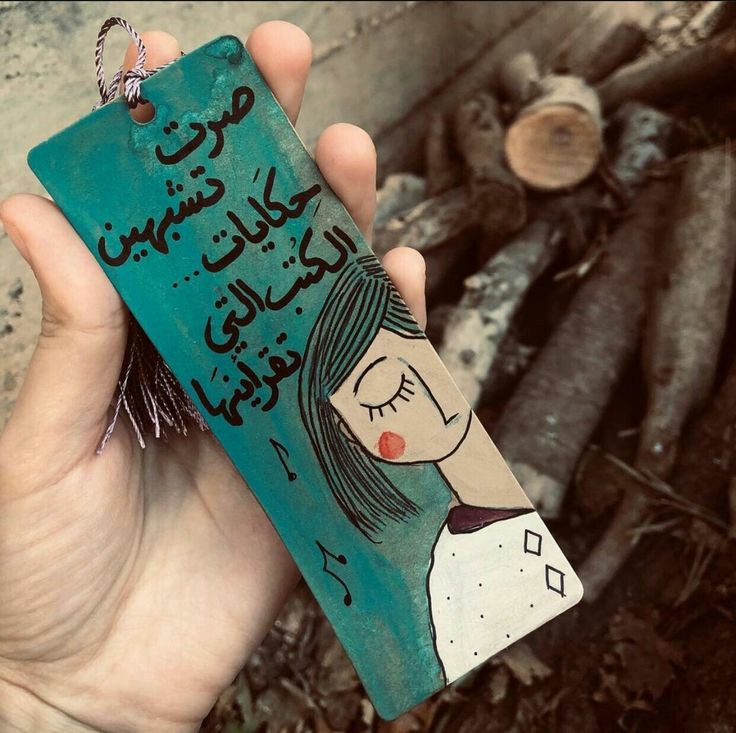 صرت
تشبهين
حكايات...
الكُتب التي
تقرأينهَا